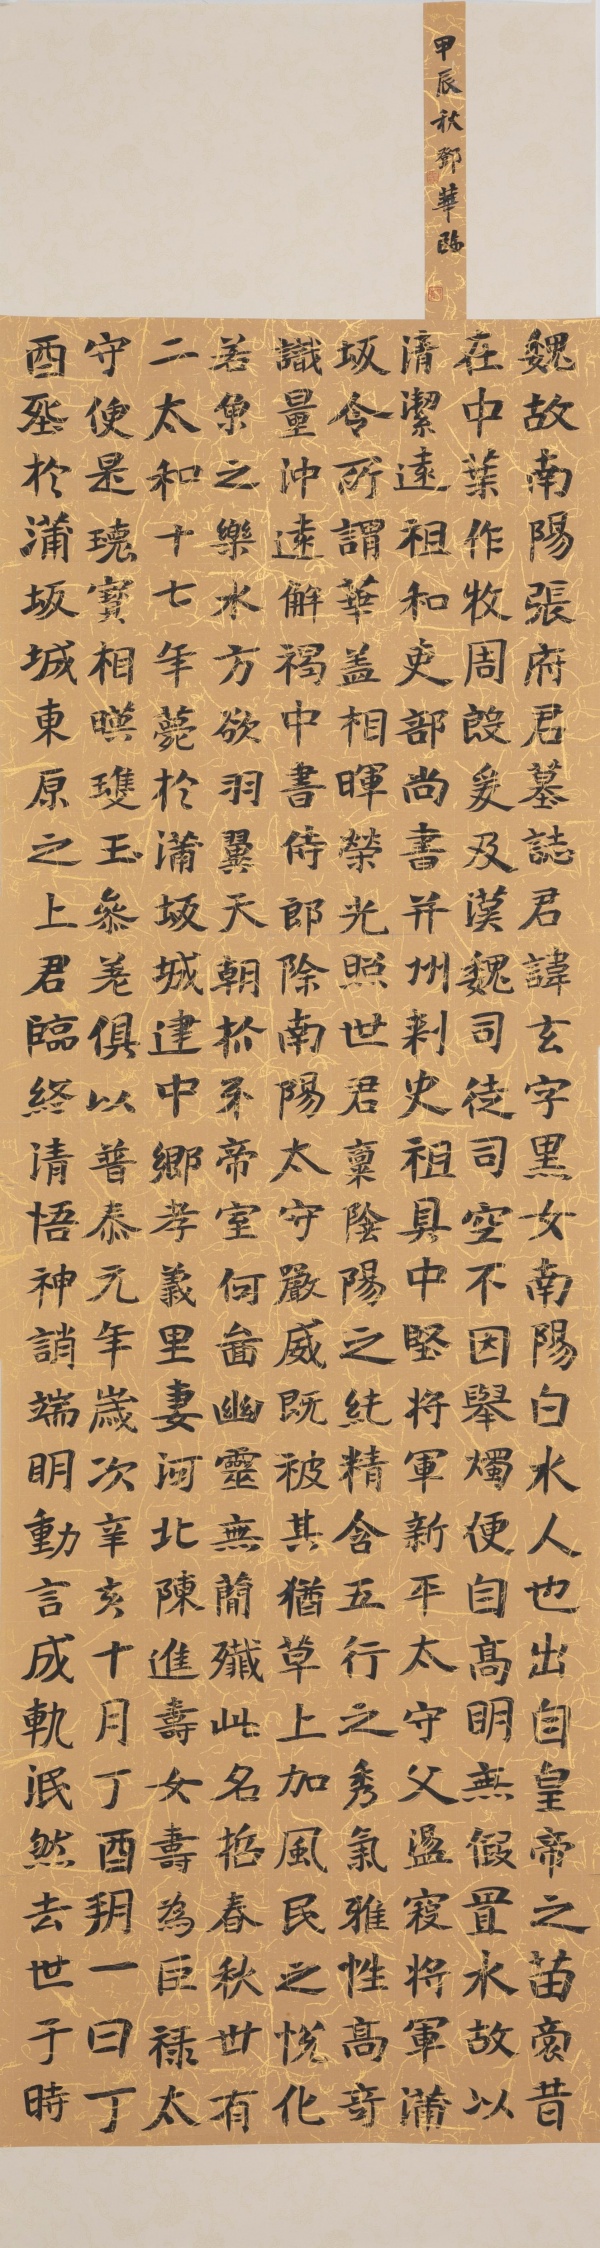 甲辰秋鄧華臨
魏故南陽張府君墓誌君諱玄字黑女南陽白水人也出自皇帝之苗裔昔
在中葉作牧周殷爰及漢魏司徒司空不因舉燭便自高明無假置水故以
清潔遠祖和吏部尚書并州刺史祖具中堅將軍新平太守父盪寇將軍蒲
坂令所謂華蓋相暉榮光照世君稟陰陽之純精含五行之秀氣雅性高奇
識量沖遠解褐中書侍郎除南陽太守嚴威既被其猶草上加風民之悅化
若魚之樂水方欲羽翼天朝抓牙帝室何啚幽靈無簡殲此名哲春秋卅有
二太和十七年薨於蒲坂城建中鄉孝義里妻河北陳進壽女壽為巨祿太
守便是瑰寶相暎瓊玉參差俱以普泰元年歲次辛亥十月丁酉朔一日丁
酉塟於蒲坂城東原之上君臨終清悟神誚端明動言成軌泯然去世于時